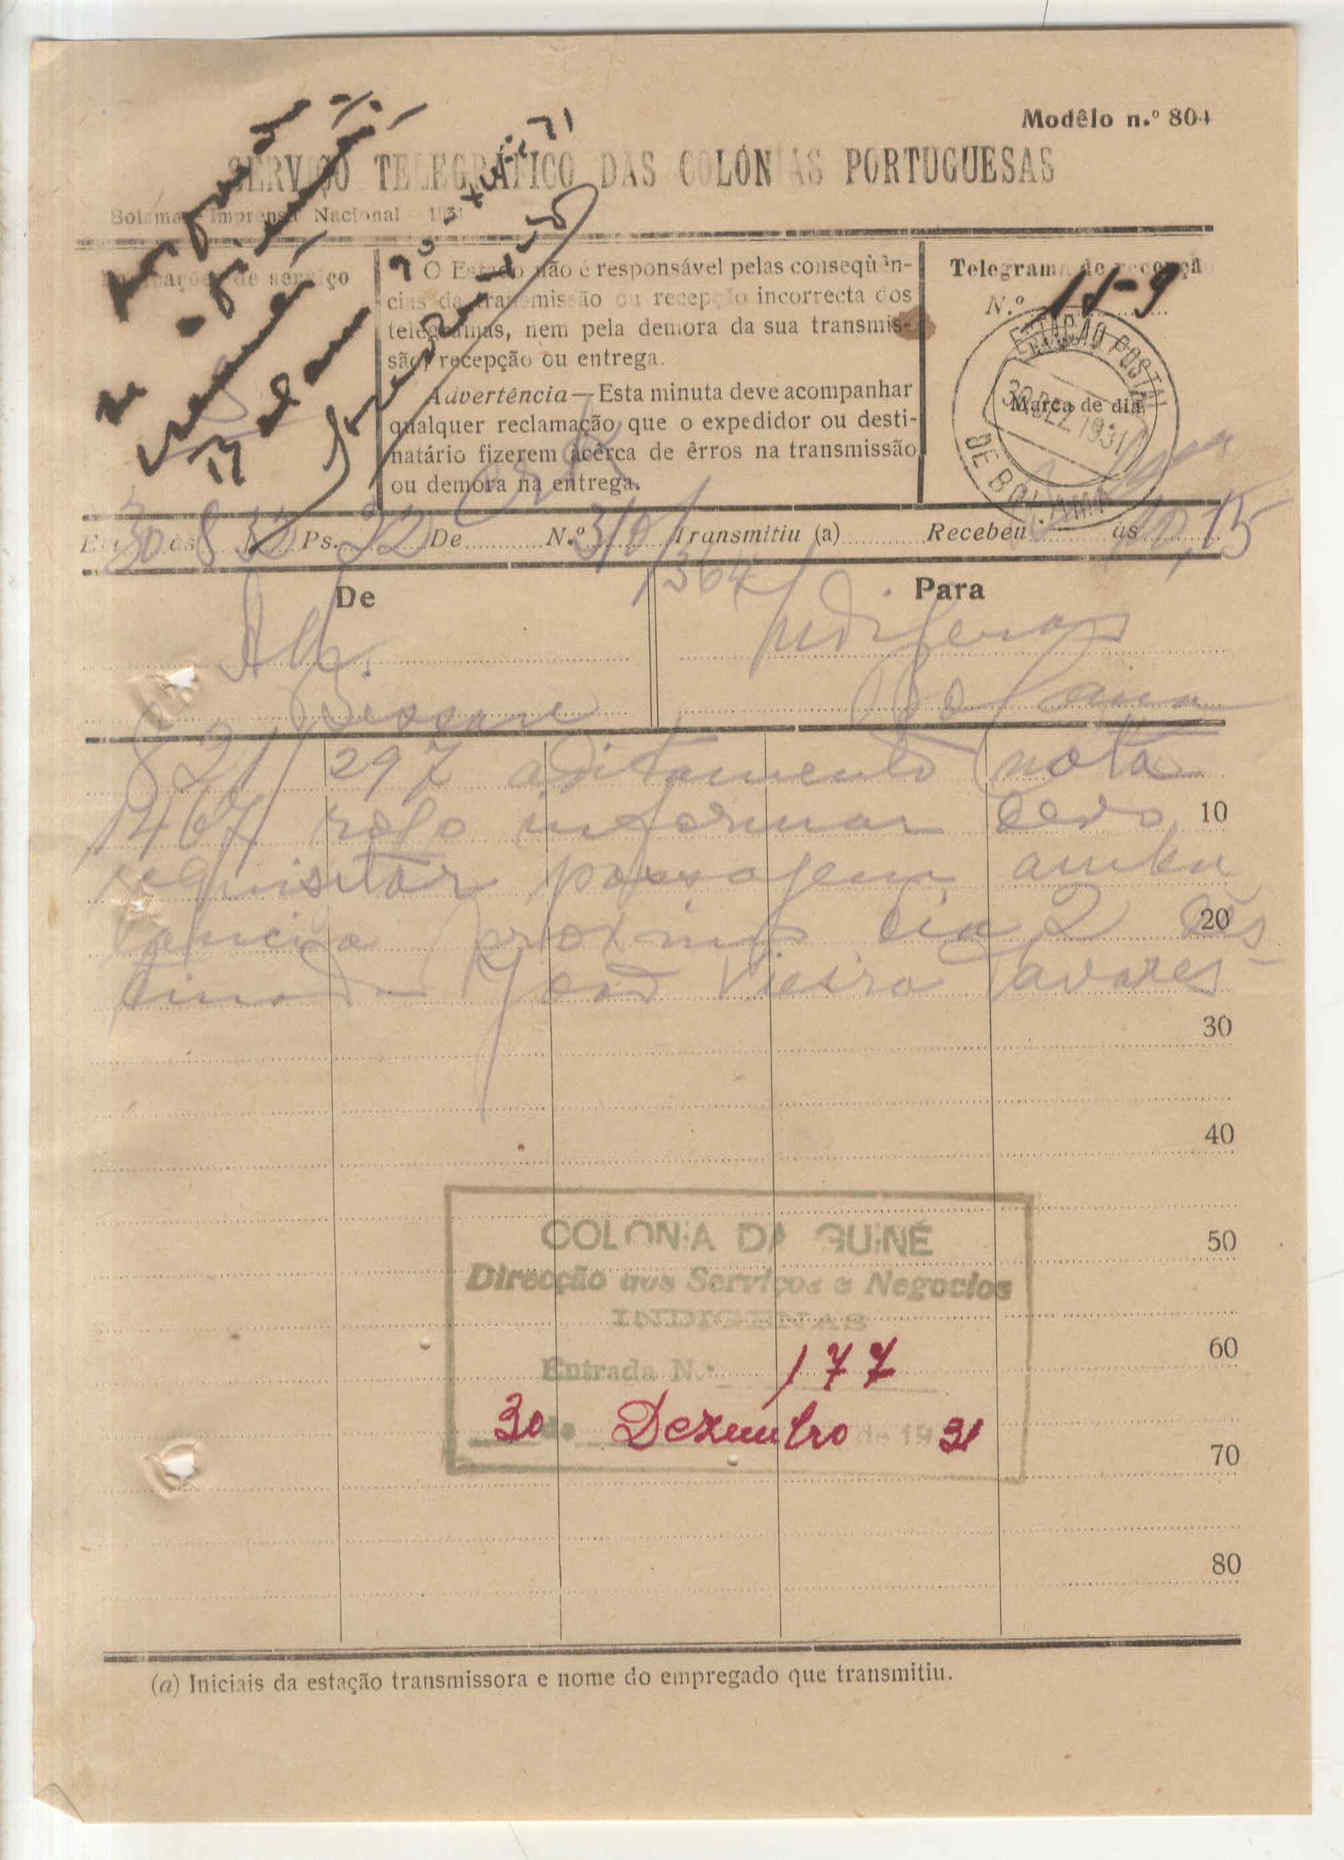 Modêlo n.º 804
SERVIÇO TELEGRÁFICO DAS COLÓNIAS PORTUGUESAS
Bolama Imprensa Nacional 1931
de serviço
O Estado não é responsável pelas conseqùên-
cias da transmissão ou recepção incorrecta dos
telegramas, nem pela demora da sua transmis-
são, recepção ou entrega.
Advertência—Esta minuta deve acompanhar
qualquer reclamação que o expedidor ou desti-
natário fizerem àcêrca de êrros na transmissão
ou demora na entrega.
Telegrama de recepção
N.º 11-9
ESTAÇÃO POSTAL
Marca de dia
30 DEZ 1931
DE BOLAMA
30 às 8 32 Ps. 22 De N.º 310/364 Transmitiu (a) Recebeu às 10,15
De
Para
Adm. Indigenas
Bissau Bolama
821/297 aditamento nota
1467 rogo informar devo 10
requisitar passagem ambu
lancia proximo dia 2 des 20
tinado João Vieira Tavares-
30
40
50
60
70
80
COLONIA DA GUINÉ
Direcção dos Serviços e Negocios
INDIGENAS
Entrada N.º 177
30 de Dezembro de 1931
(a) Iniciais da estação transmissora e nome do empregado que transmitiu.